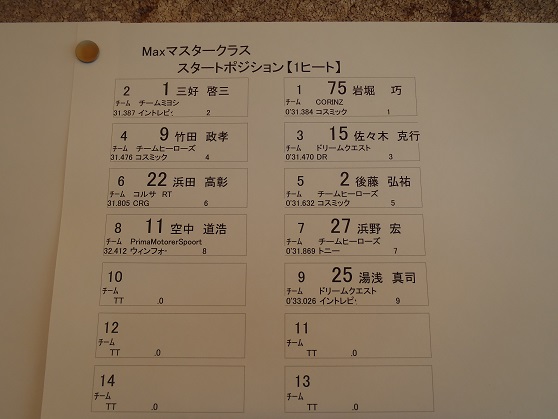 Maxマスタークラス
スタートポジション【1ヒート】
2 1 三好 啓三
チーム チームミヨシ
31.387 イントレピ・ 2
1 75 岩堀 巧
チーム CORINZ
0'31.384 コスミック 1
4 9 竹田 政孝
チーム チームヒーローズ
31.476 コスミック 4
3 15 佐々木 克行
チーム ドリームクエスト
0'31.470 DR 3
6 22 浜田 高彰
チーム コルサ RT
31.805 CRG 6
5 2 後藤 弘祐
チーム チームヒーローズ
0'31.632 コスミック 5
8 11 空中 道浩
チーム PrimaMotorerSpoort
32.412 ウィンフォ・ 8
7 27 浜野 宏
チーム チームヒーローズ
0'31.869 トニー 7
10
チーム
TT .0
9 25 湯浅 真司
チーム ドリームクエスト
0'33.026 イントレピ・ 9
12
チーム
TT .0
11
チーム
TT .0
14
チーム
TT .0
13
チーム
TT .0